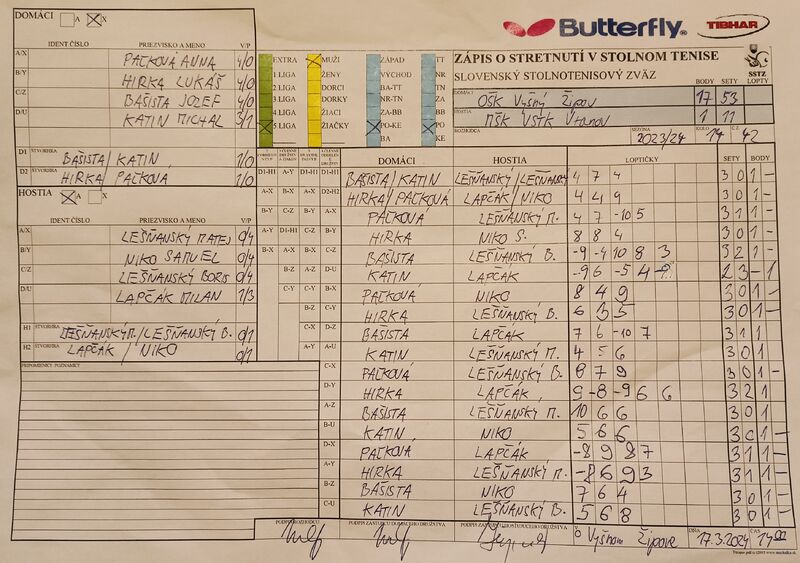 DOMÁCI A X
IDENT ČÍSLO PRIEZVISKO A MENO V/P
A/X PAĽKOVÁ ANNA 4/0
B/Y HIRKA LUKÁŠ 4/0
C/Z BAŠISTA JOZEF 4/0
D/U KATIN MICHAL 3/1
D1 ŠTVORHRA BAŠISTA/KATIN 1/0
D2 ŠTVORHRA HIRKA/PAĽKOVÁ 1/0
HOSTIA A X
IDENT ČÍSLO PRIEZVISKO A MENO V/P
A/X LEŠŇANSKÝ MATEJ 0/4
B/Y NIKO SAMUEL 0/4
C/Z LEŠŇANSKÝ BORIS 0/4
D/U LAPČÁK MILAN 1/3
H1 ŠTVORHRA LEŠŇANSKÝ M./LEŠŇANSKÝ B. 0/1
H2 ŠTVORHRA LAPČÁK/NIKO 0/1
PRIPOMIENKY POZNÁMKY
Butterfly
TIBHAR
EXTRA MUŽI ZÁPAD TT
1 LIGA ŽENY VÝCHOD NR
2 LIGA DORCI BA-TT BB
3 LIGA DORKY NR-TN ZA
4 LIGA ŽIACI ZA-BB
5 LIGA ŽIAČKY PO-KE PO
BA KE
ZÁPIS O STRETNUTÍ V STOLNOM TENISE
SLOVENSKÝ STOLNOTENISOVÝ ZVÄZ
SSTZ
BODY SETY LOPTY
DOMÁCI OŠK VYŠNÝ ŽIPOV 17 53
HOSTIA MŠK VSTK VRANOV 1 11
ROZHODCA SEZONA 2023/24 KOLO 14 Č.Z. 42
DOMÁCI HOSTIA LOPTIČKY SETY BODY
D1-H1 A-Y D1-H1 D1-H1 BAŠISTA/KATIN LEŠŇANSKÝ/LEŠŇANSKÝ 4 7 4 3 0 1 -
A-X B-X D2-H2 HIRKA/PAĽKOVÁ LAPČÁK/NIKO 4 4 9 3 0 1 -
B-Y C-Z A-X PAĽKOVÁ LEŠŇANSKÝ M. 4 7 -10 5 3 1 1 -
A-Y D1-H1 C-X B-Y HIRKA NIKO S. 8 8 4 3 0 1 -
B-X A-X B-Z C-Z BAŠISTA LEŠŇANSKÝ B. -9 -4 10 8 3 3 2 1 -
B-Z A-Z D-U KATIN LAPČÁK -9 6 -5 4 -9 2 3 - 1
C-Y C-Y B-X PAĽKOVÁ NIKO 8 4 9 3 0 1 -
B-Z C-Y HIRKA LEŠŇANSKÝ B. 6 3 5 3 0 1 -
C-X D-Z BAŠISTA LAPČÁK 7 6 -10 7 3 1 1
A-Y A-U KATIN LEŠŇANSKÝ M. 4 5 6 3 0 1
C-X PAĽKOVÁ LEŠŇANSKÝ B. 8 7 9 3 0 1 -
D-Y HIRKA LAPČÁK 9 -8 -9 6 6 3 2 1 -
A-Z BAŠISTA LEŠŇANSKÝ M. 10 6 6 3 0 1
B-U KATIN NIKO 5 6 6 3 0 1 -
D-X PAĽKOVÁ LAPČÁK -8 9 8 7 3 1 1 -
A-Y HIRKA LEŠŇANSKÝ M. -8 6 9 3 3 1 1 -
B-Z BAŠISTA NIKO 7 6 4 3 0 1 -
C-U KATIN LEŠŇANSKÝ B. 5 6 8 3 0 1 -
PODPIS ROZHODCU PODPIS ZÁSTUPCU DOMÁCEHO DRUŽSTVA PODPIS ZÁSTUPCU HOSŤUJÚCEHO DRUŽSTVA V Vyšnom Žipove DŇA 17.3.2024 ČAS 14 00